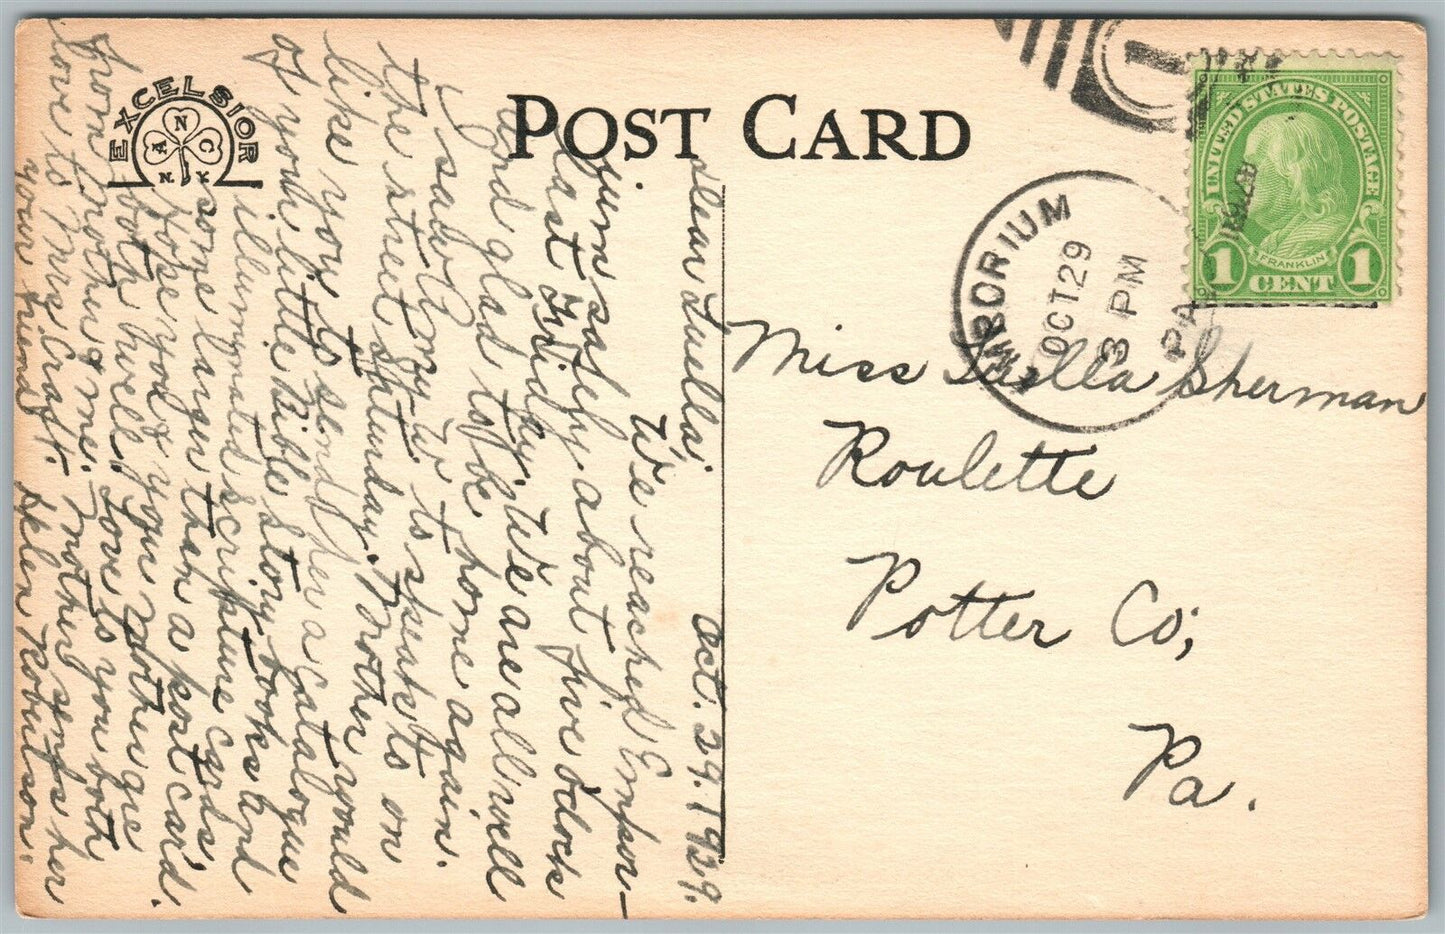 POST CARD
EXCELSIOR
A N C
N.Y.
EMPORIUM
OCT 29
3 PM
PA
UNITED STATES POSTAGE
FRANKLIN
1 CENT 1
Miss Luella Sherman
Roulette
Potter Co;
Pa.
Oct. 29. 1929.
Dear Luella;
We reached Empor-
ium safely about five oclock
last Friday. We are all well
and glad to be home again.
I saw Roy W to speak to on
the street Saturday. Mother would
like you to send her a catalogue
of your little Bible Story books and
illuminated scripture cards,
some larger than a post card.
Hope you & your Mother are
both well. Love to you both
from Mother & me. Mother sends her
love to Mrs. Craft.
your friend Helen Robertson.